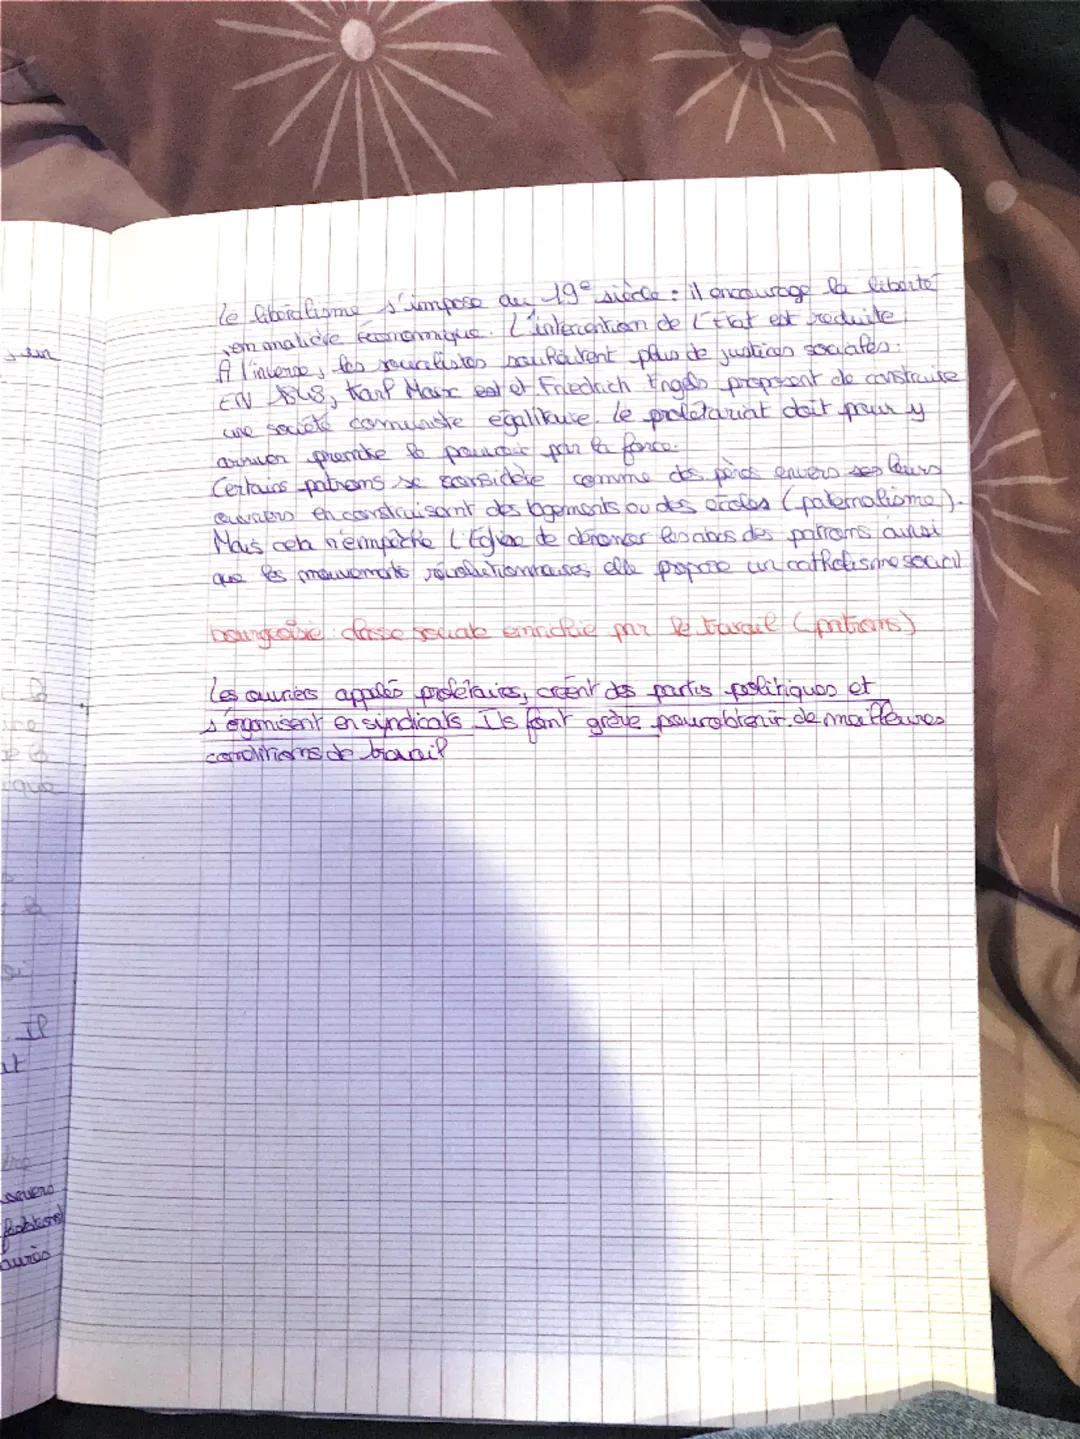 Le libéralisme s'impose au 19e siècle : il encourage la liberté
en matière économique. L'intervention de l'Etat est reduite
À l'inverse, les socialistes souhaitent plus de justices sociales.
EN 1848, Karl Marx est et Friedrich Engels proposent de construire
une société communiste égalitaire. Le prolétariat doit pour y
arriver prendre le pouvoir par la force.
Certains patrons se considère comme des pères envers ses leurs
ouvriers en construisant des logements ou des écoles (paternalisme).
Mais cela n'empêche l'Eglise de dénoncer les abus des patrons aussi
que les mouvements révolutionnaires elle propose un catholisisme social
bourgeoisie : classe sociale enrichie par le travail (patrons)
Les ouvriers appelés prolétaires, créent des partis politiques et
s'organisent en syndicats Ils font grève pour obtenir de meilleures
conditions de travail
sur
la
que
Il
it
auros